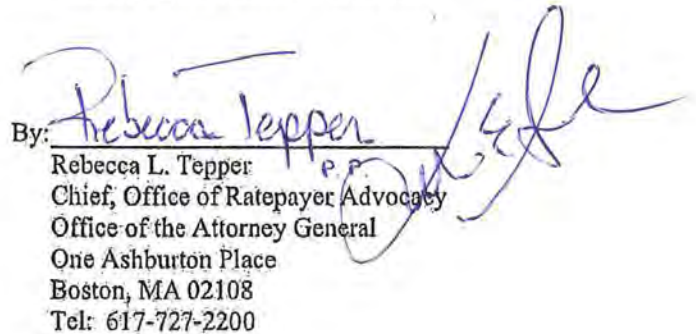 By: Rebecca Tepper
Rebecca L. Tepper P.P.
Chief, Office of Ratepayer Advocacy
Office of the Attorney General
One Ashburton Place
Boston, MA 02108
Tel: 617-727-2200